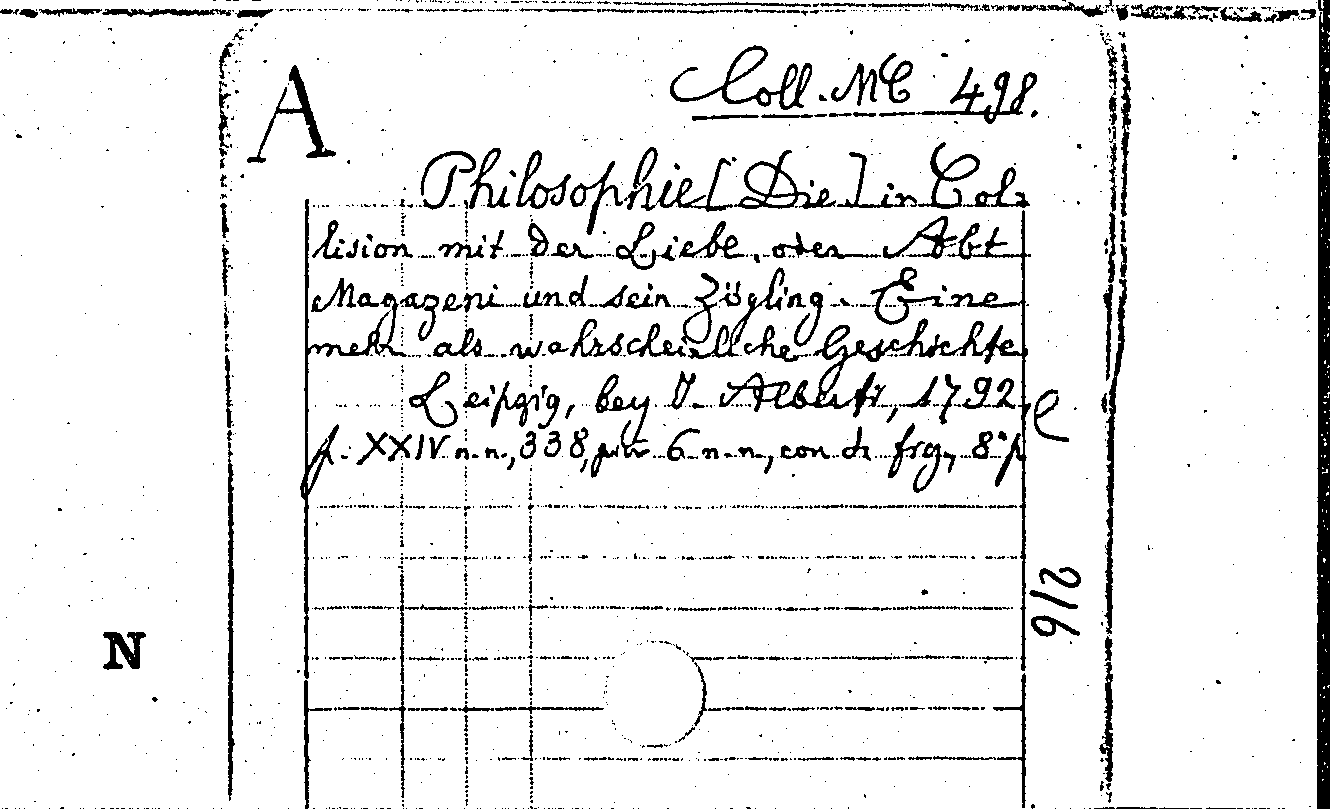 A
Coll. MC 498.
Philosophie [Die] in Col-
lision mit der Liebe, oder Abt
Magazeni und sein Zögling. Eine
mehr als wahrscheinliche Geschichte
Leipzig, bey J. Alberti, 1792,
f. XXIV n.n., 338, più 6 n.n., con frg., 8°p
2/6
N